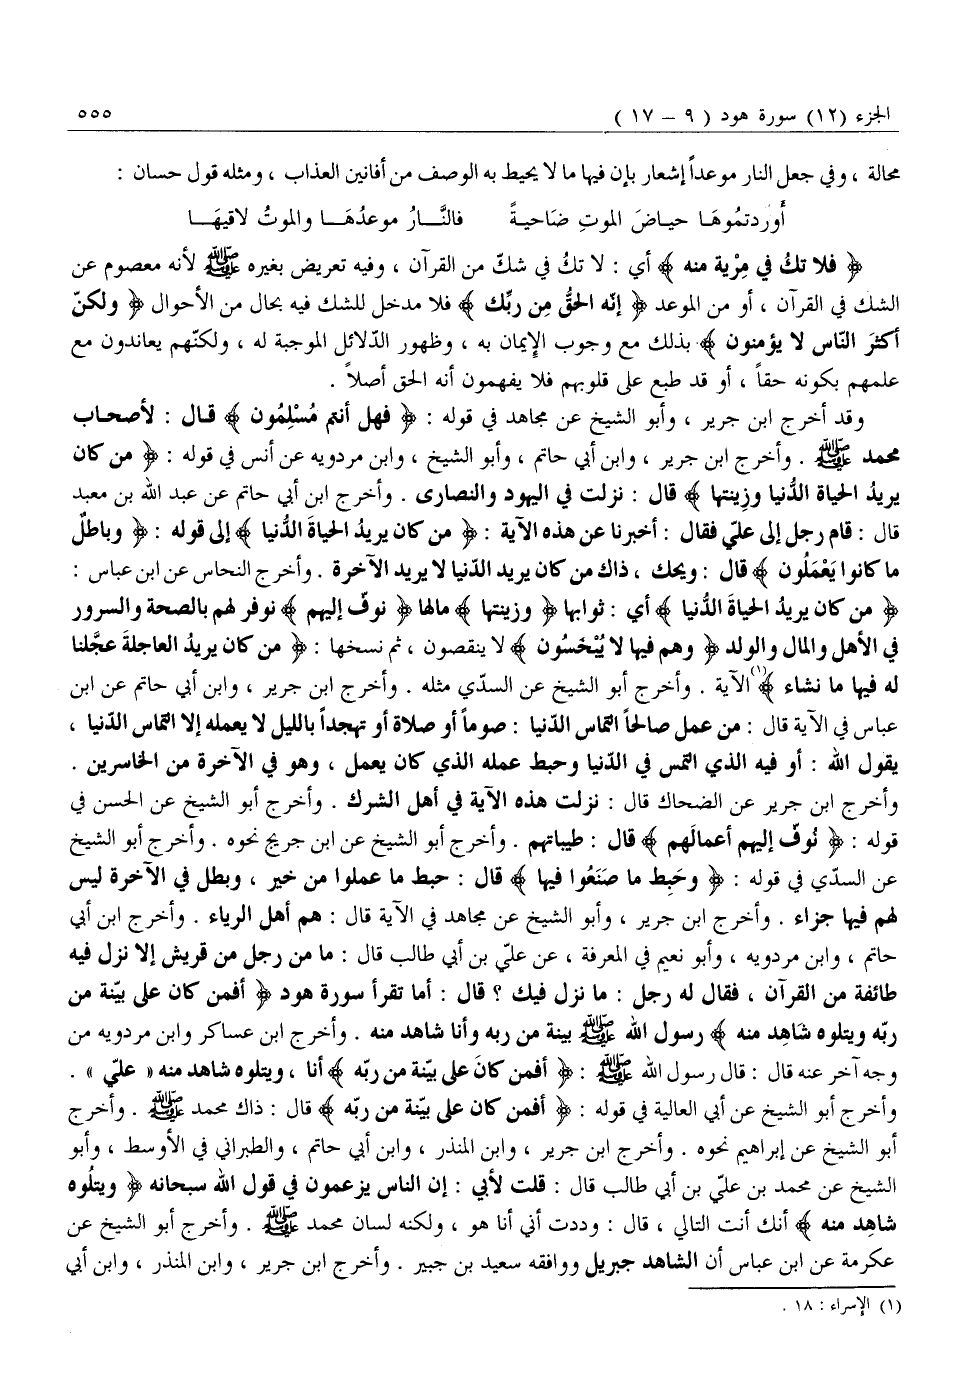 الجزء (١٢) سورة هود ( ٩ – ١٧ ) ٥٥٥
محالة ، وفي جعل النار موعداً إشعار بإن فيها ما لا يحيط به الوصف من أفانين العذاب ، ومثله قول حسان :
أَوردتمُوهَـا حيـاضَ الموتِ ضَاحيـةً فالنَّـارُ موعدُهَـا والموتُ لاقيهَـا
﴿ فلا تكُ في مِرْية منه ﴾ أي : لا تكُ في شكّ من القرآن ، وفيه تعريض بغيره ﷺ لأنه معصوم عن
الشك في القرآن ، أو من الموعد ﴿ إنّه الحقُّ مِن ربِّك ﴾ فلا مدخل للشك فيه بحال من الأحوال ﴿ ولكنّ
أكثرَ النّاس لا يؤمنون ﴾ بذلك مع وجوب الإيمان به ، وظهور الدّلائل الموجبة له ، ولكنّهم يعاندون مع
علمهم بكونه حقاً ، أو قد طبع على قلوبهم فلا يفهمون أنه الحق أصلاً .
وقد أخرج ابن جرير ، وأبو الشيخ عن مجاهد في قوله : ﴿ فهل أنتم مُسْلِمُون ﴾ قـال : لأصحـاب
محمد ﷺ . وأخرج ابن جرير ، وابن أبي حاتم ، وأبو الشيخ ، وابن مردويه عن أنس في قوله : ﴿ من كان
يريدُ الحياة الدُّنيا وزِينتها ﴾ قال : نزلت في اليهود والنصارى . وأخرج ابن أبي حاتم عن عبد الله بن معبد
قال : قام رجل إلى عليّ فقال : أخبرنا عن هذه الآية : ﴿ من كان يريدُ الحياةَ الدُّنيا ﴾ إلى قوله : ﴿ وباطلٌ
ما كانوا يَعْمَلُون ﴾ قال : ويحك ، ذاك من كان يريد الدّنيا لا يريد الآخرة . وأخرج النحاس عن ابن عباس :
﴿ من كان يريدُ الحياةَ الدُّنيا ﴾ أي : ثوابها ﴿ وزينتها ﴾ مالها ﴿ نوفّ إليهم ﴾ نوفر لهم بالصحة والسرور
في الأهل والمال والولد ﴿ وهم فيها لا يُبْخَسُون ﴾ لا ينقصون ، ثم نسخها : ﴿ من كان يريدُ العاجلةَ عجَّلنا
له فيها ما نشاء ﴾(١) الآية . وأخرج أبو الشيخ عن السدّي مثله . وأخرج ابن جرير ، وابن أبي حاتم عن ابن
عباس في الآية قال : من عمل صالحاً التماس الدّنيا : صوماً أو صلاة أو تهجداً بالليل لا يعمله إلا التماس الدّنيا ،
يقول الله : أو فيه الذي التمس في الدّنيا وحبط عمله الذي كان يعمل ، وهو في الآخرة من الخاسرين .
وأخرج ابن جرير عن الضحاك قال : نزلت هذه الآية في أهل الشرك . وأخرج أبو الشيخ عن الحسن في
قوله : ﴿ نُوفّ إليهم أعمالَهم ﴾ قال : طيباتهم . وأخرج أبو الشيخ عن ابن جريج نحوه . وأخرج أبو الشيخ
عن السدّي في قوله : ﴿ وحَبِط ما صَنَعُوا فيها ﴾ قال : حبط ما عملوا من خير ، وبطل في الآخرة ليس
لهم فيها جزاء . وأخرج ابن جرير ، وأبو الشيخ عن مجاهد في الآية قال : هم أهل الرياء . وأخرج ابن أبي
حاتم ، وابن مردويه ، وأبو نعيم في المعرفة ، عن عليّ بن أبي طالب قال : ما من رجل من قريش إلا نزل فيه
طائفة من القرآن ، فقال له رجل : ما نزل فيك ؟ قال : أما تقرأ سورة هود ﴿ أفمن كان على بيّنة من
ربّه ويتلوه شاهِد منه ﴾ رسول الله ﷺ بينة من ربه وأنا شاهد منه . وأخرج ابن عساكر وابن مردويه من
وجه آخر عنه قال : قال رسول الله ﷺ : ﴿ أفمن كانَ على بيّنة من ربّه ﴾ أنا ، ويتلوه شاهد منه « عليّ » .
وأخرج أبو الشيخ عن أبي العالية في قوله : ﴿ أفمن كان على بيّنة من ربّه ﴾ قال : ذاك محمد ﷺ . وأخرج
أبو الشيخ عن إبراهيم نحوه . وأخرج ابن جرير ، وابن المنذر ، وابن أبي حاتم ، والطبراني في الأوسط ، وأبو
الشيخ عن محمد بن عليّ بن أبي طالب قال : قلت لأبي : إن الناس يزعمون في قول الله سبحانه ﴿ ويتلُوه
شاهِد منه ﴾ أنك أنت التالي ، قال : وددت أني أنا هو ، ولكنه لسان محمد ﷺ . وأخرج أبو الشيخ عن
عكرمة عن ابن عباس أن الشاهد جبريل ووافقه سعيد بن جبير . وأخرج ابن جرير ، وابن المنذر ، وابن أبي
(١) الإسراء : ١٨ .